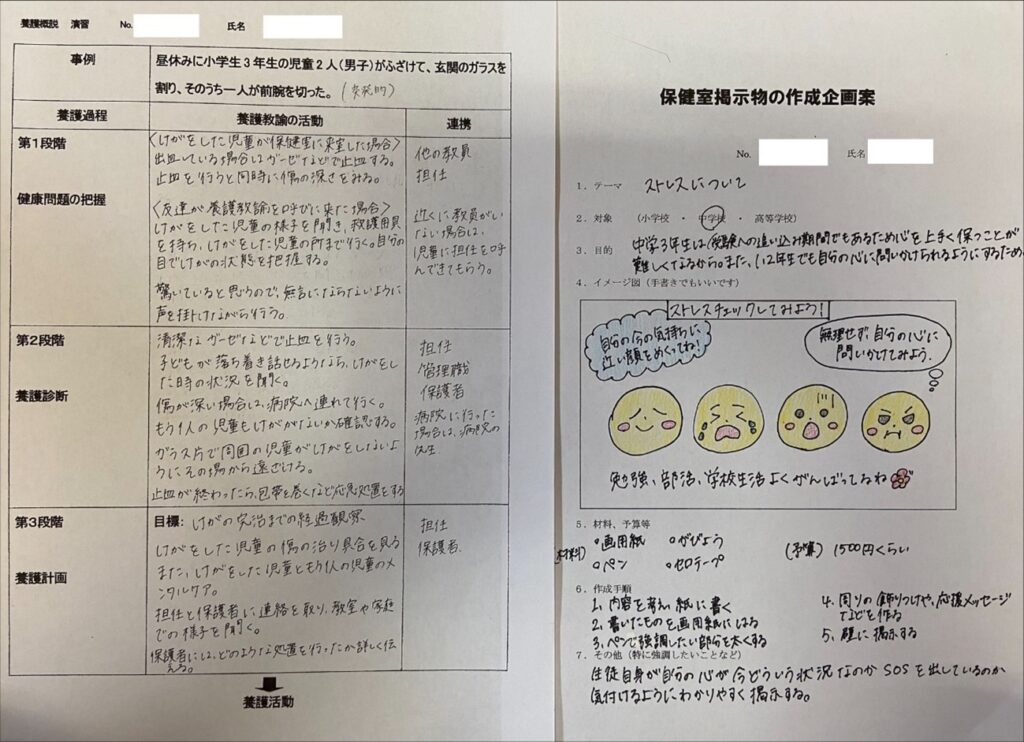 養護概説 演習 No. 氏名
事例
昼休みに小学生3年生の児童2人(男子)がふざけて、玄関のガラスを
割り、そのうち一人が前腕を切った。(突発的)
養護過程 養護教諭の活動 連携
第1段階
健康問題の把握
〈けがをした児童が保健室に来室した場合〉
出血している場合はガーゼなどで止血する。
止血を行うと同時に傷の深さをみる。
〈友達が養護教諭を呼びに来た場合〉
けがをした児童の様子を聞き、救護用具
を持ち、けがをした児童の所まで行く。自分の
目でけがの状態を把握する。
驚いていると思うので、無言にならないように
声を掛けながら行う。
他の教員
担任
近くに教員がい
ない場合は、
児童に担任を呼
んできてもらう。
第2段階
養護診断
清潔なガーゼなどで止血を行う。
子どもが落ち着き話せるようなら、けがをし
た時の状況を聞く。
傷が深い場合は、病院へ連れて行く。
もう1人の児童もけががないか確認する。
ガラス片で周囲の児童がけがをしないよ
うにその場から遠ざける。
止血が終わったら、包帯を巻くなど応急処置をする
担任
管理職
保護者
病院に行った
場合は、病院の
先生
第3段階
養護計画
目標: けがの完治までの経過観察
けがをした児童の傷の治り具合を見る
また、けがをした児童ともう1人の児童のメ
ンタルケア。
担任と保護者に連絡を取り、教室や家庭
での様子を聞く。
保護者には、どのような処置を行ったか詳しく伝
える。
担任
保護者
養護活動
保健室掲示物の作成企画案
No. 氏名
1. テーマ ストレスについて
2. 対象 (小学校 ・ 中学校 ・ 高等学校)
3. 目的 中学3年生は受験への追い込み期間でもあるため心を上手く保つことが
難しくなるから。また、1、2年生でも自分の心に問いかけられるようにするため
4. イメージ図(手書きでもいいです)
ストレスチェックしてみよう!
自分の今の気持ちに
近い顔をめくってね!
無理せず、自分の心に
問いかけてみよう.
勉強、部活、学校生活よくがんばってるね
5. 材料、予算等
(材料) ・画用紙 ・がびょう
・ペン ・セロテープ
(予算) 1500円くらい
6. 作成手順
1. 内容を考え紙に書く
2. 書いたものを画用紙にはる
3. ペンで強調したい部分を太くする
4. 周りの飾りつけや、応援メッセージ
などを作る
5. 壁に掲示する
7. その他(特に強調したいことなど)
生徒自身が自分の心が今どういう状況なのかSOSを出しているのか
気付けるようにわかりやすく掲示する。